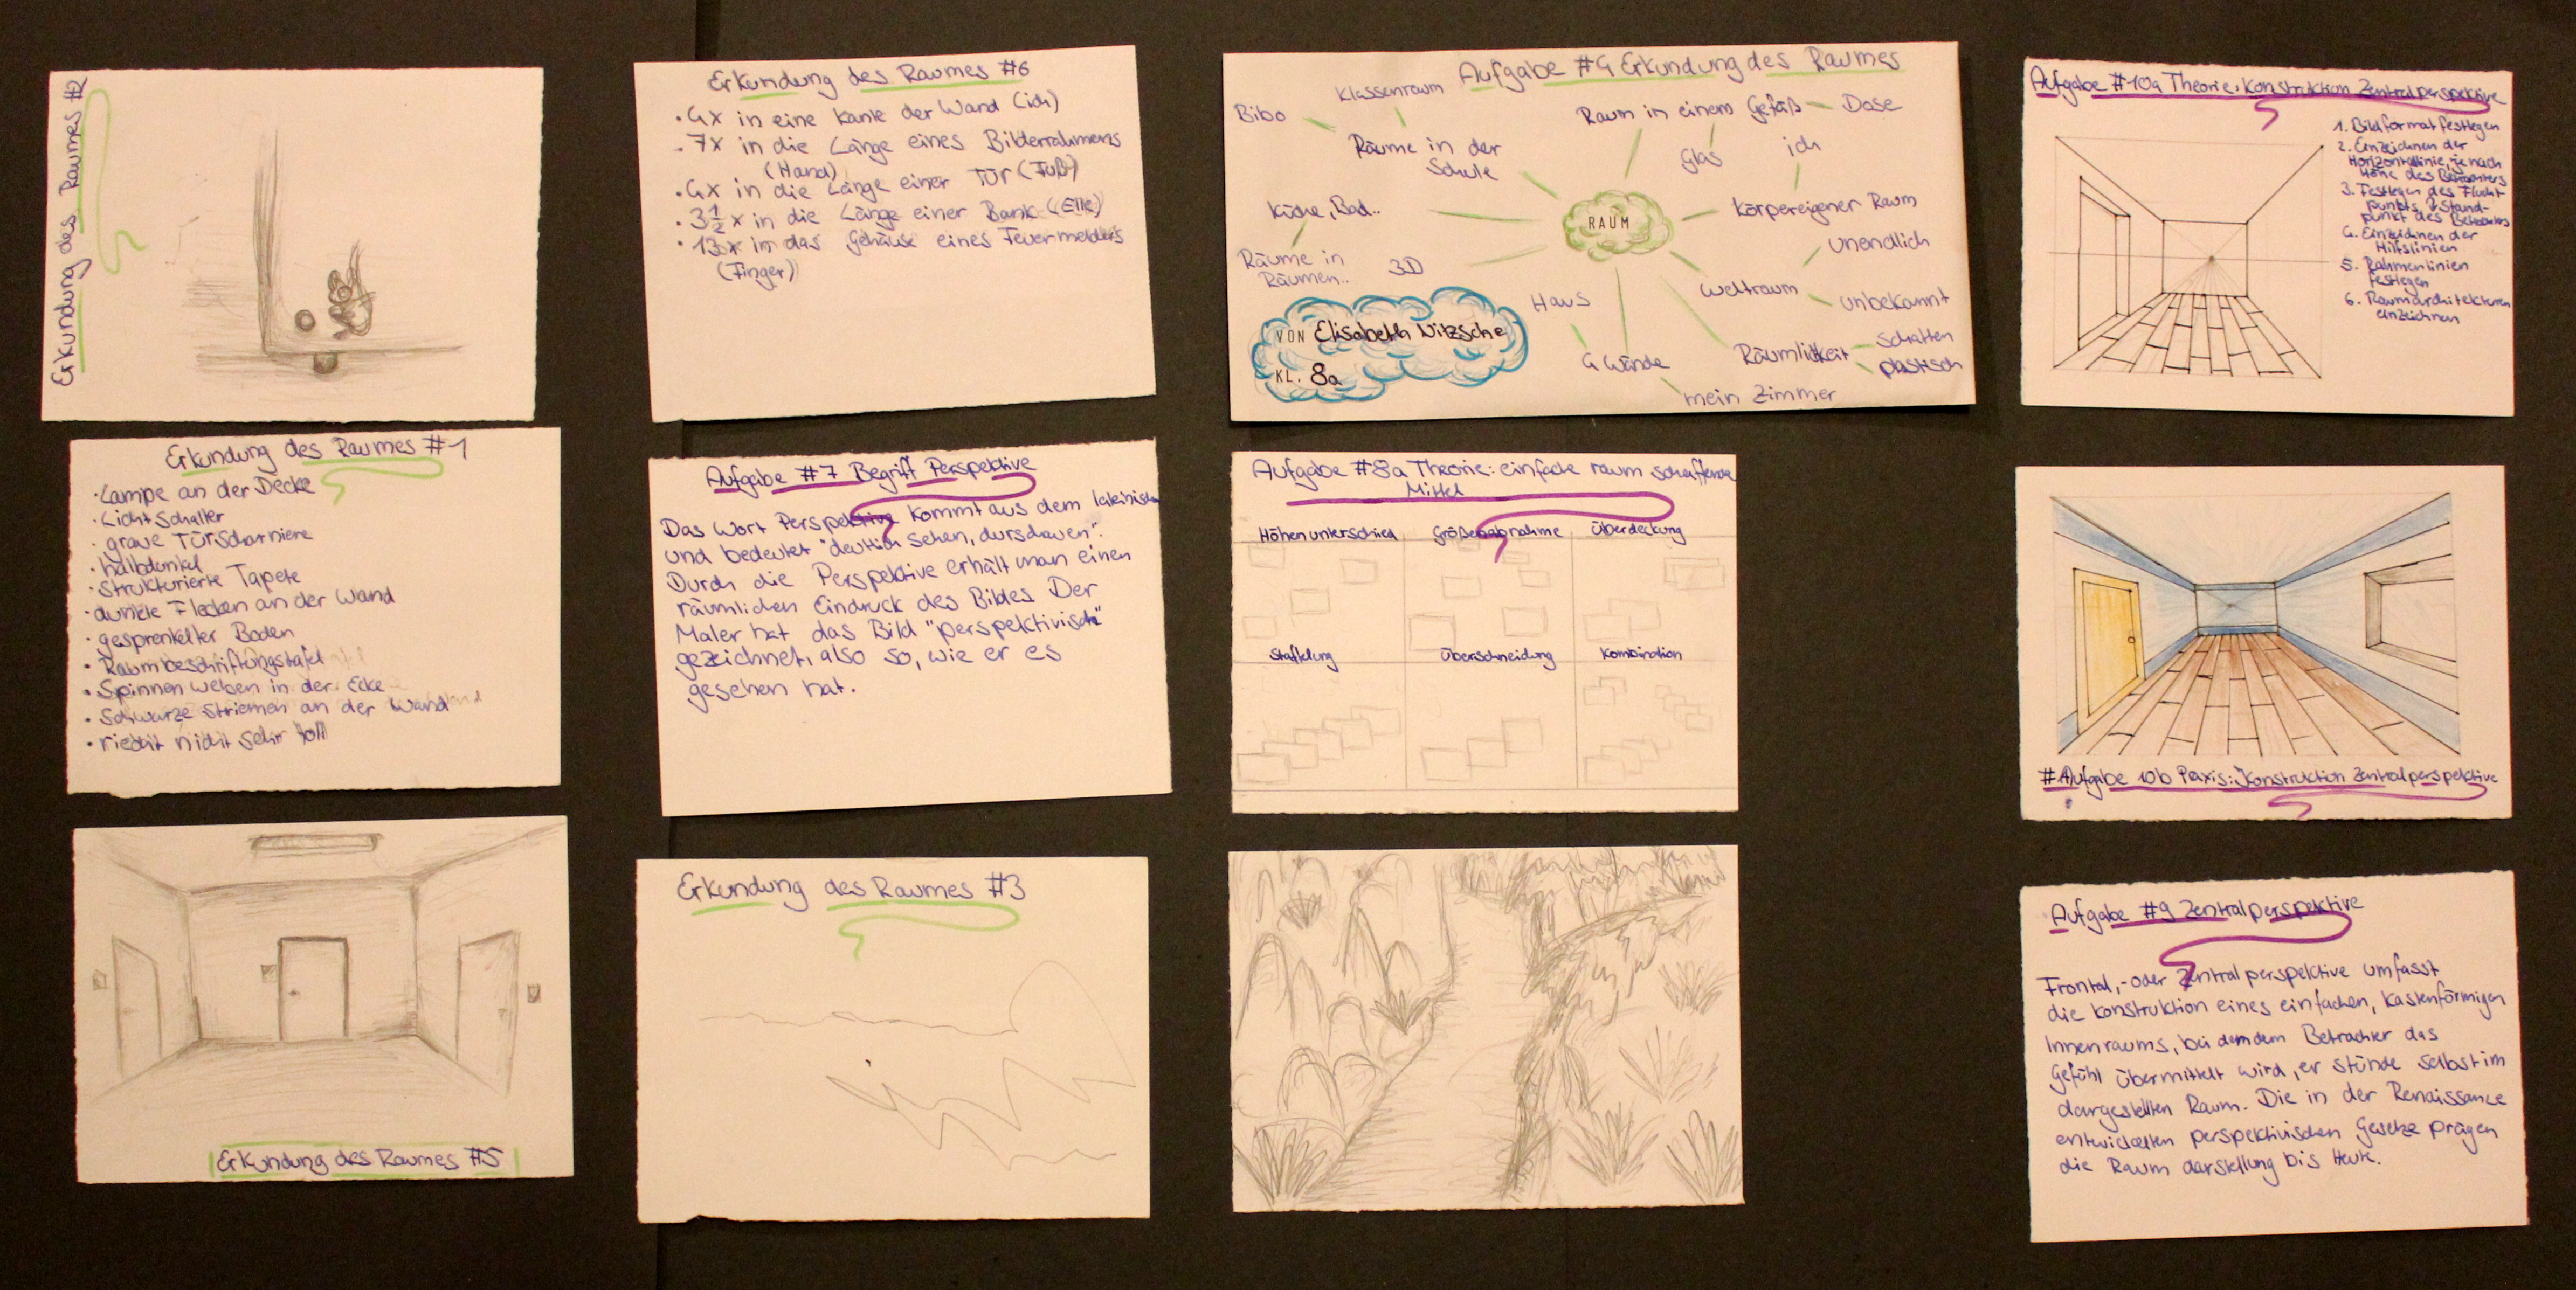 Erkundung des Raumes #2
Erkundung des Raumes #1
·Lampe an der Decke
·Lichtschalter
·graue Türscharniere
·halbdunkel
·strukturierte Tapete
·dunkle Flecken an der Wand
·gesprenkelter Boden
·Raumbeschriftungstafel
·Spinnenweben in der Ecke
·Schwarze Striemen an der Wand
·riecht nicht sehr toll
Erkundung des Raumes #5
Erkundung des Raumes #6
·4x in eine Kante der Wand (ich)
·7x in die Länge eines Bilderrahmens
(Hand)
·4x in die Länge einer Tür (Fuß)
·3 1/2 x in die Länge einer Bank (Elle)
·13x in das Gehäuse eines Feuermelders
(Finger)
Aufgabe #7 Begriff Perspektive
Das Wort Perspektive kommt aus dem
und bedeutet "deutlich sehen, durschauen".
Durch die Perspektive erhält man einen
räumlichen Eindruck des Bildes Der
Maler hat das Bild "perspektivisch"
gezeichnet, also so, wie er es
gesehen hat.
Erkundung des Raumes #3
Aufgabe #4 Erkundung des Raumes
Klassenraum
Bibo
Räume in der
Schule
Raum in einem Gefäß
Dose
Glas
ich
Küche, Bad..
RAUM
körpereigener Raum
Räume in
Räumen..
3D
unendlich
Weltraum
unbekannt
Haus
VON Elisabeth Nitzsche
KL. 8a
4 Wände
Räumlichkeit
schatten
plastisch
mein Zimmer
Aufgabe #8a Theorie: einfache raum schaffende
Mittel
Höhenunterschied
Größenabnahme
Überdeckung
Staffelung
Überschneidung
Kombination
Aufgabe #10a Theorie: Konstruktion Zentralperspektive
1. Bildformat festlegen
2. Einzeichnen der
Horizontlinie, je nach
Höhe des Betrachters
3. Festlegen des Flucht
punkts
punkt des Betrachters
4. Einzeichnen der
Hilfslinien
5. Rahmenlinien
festlegen
6. Raumarchitekturen
einzeichnen
#Aufgabe 10b Praxis: Konstruktion Zentralperspektive
Aufgabe #9 Zentralperspektive
Frontal,-oder Zentralperspektive umfasst
die Konstruktion eines einfachen, kastenförmigen
Innenraums, bei dem dem Betrachter das
Gefühl übermittelt wird, er stünde selbst im
dargestellten Raum. Die in der Renaissance
entwickelten perspektivischen Gesetze prägen
die Raum darstellung bis Heute.